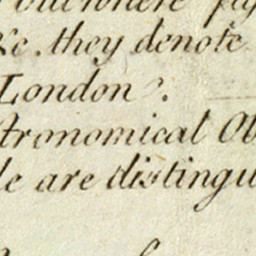 &c. they denote
London.
tronomical Ob
le are distingu